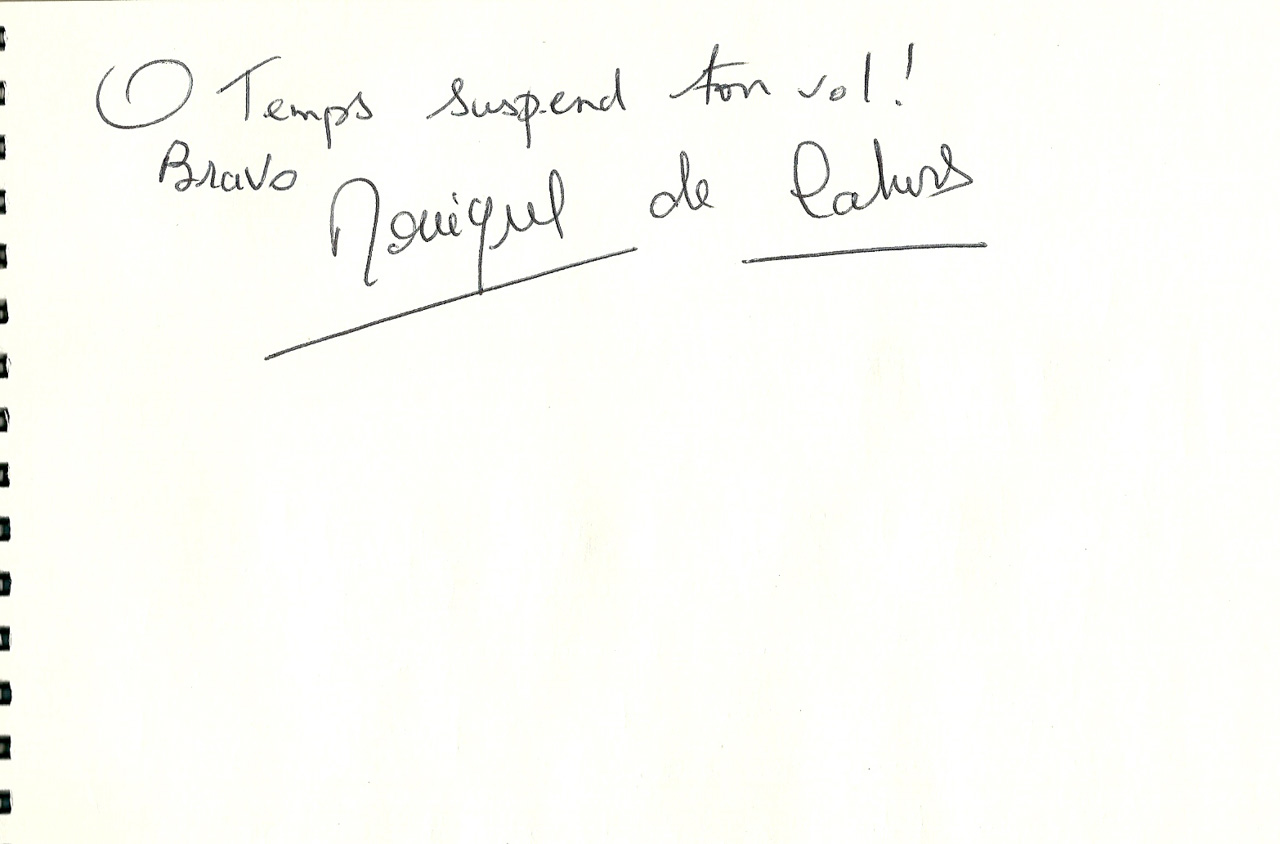 O Temps suspend ton vol!
Bravo
Monique de Cahors